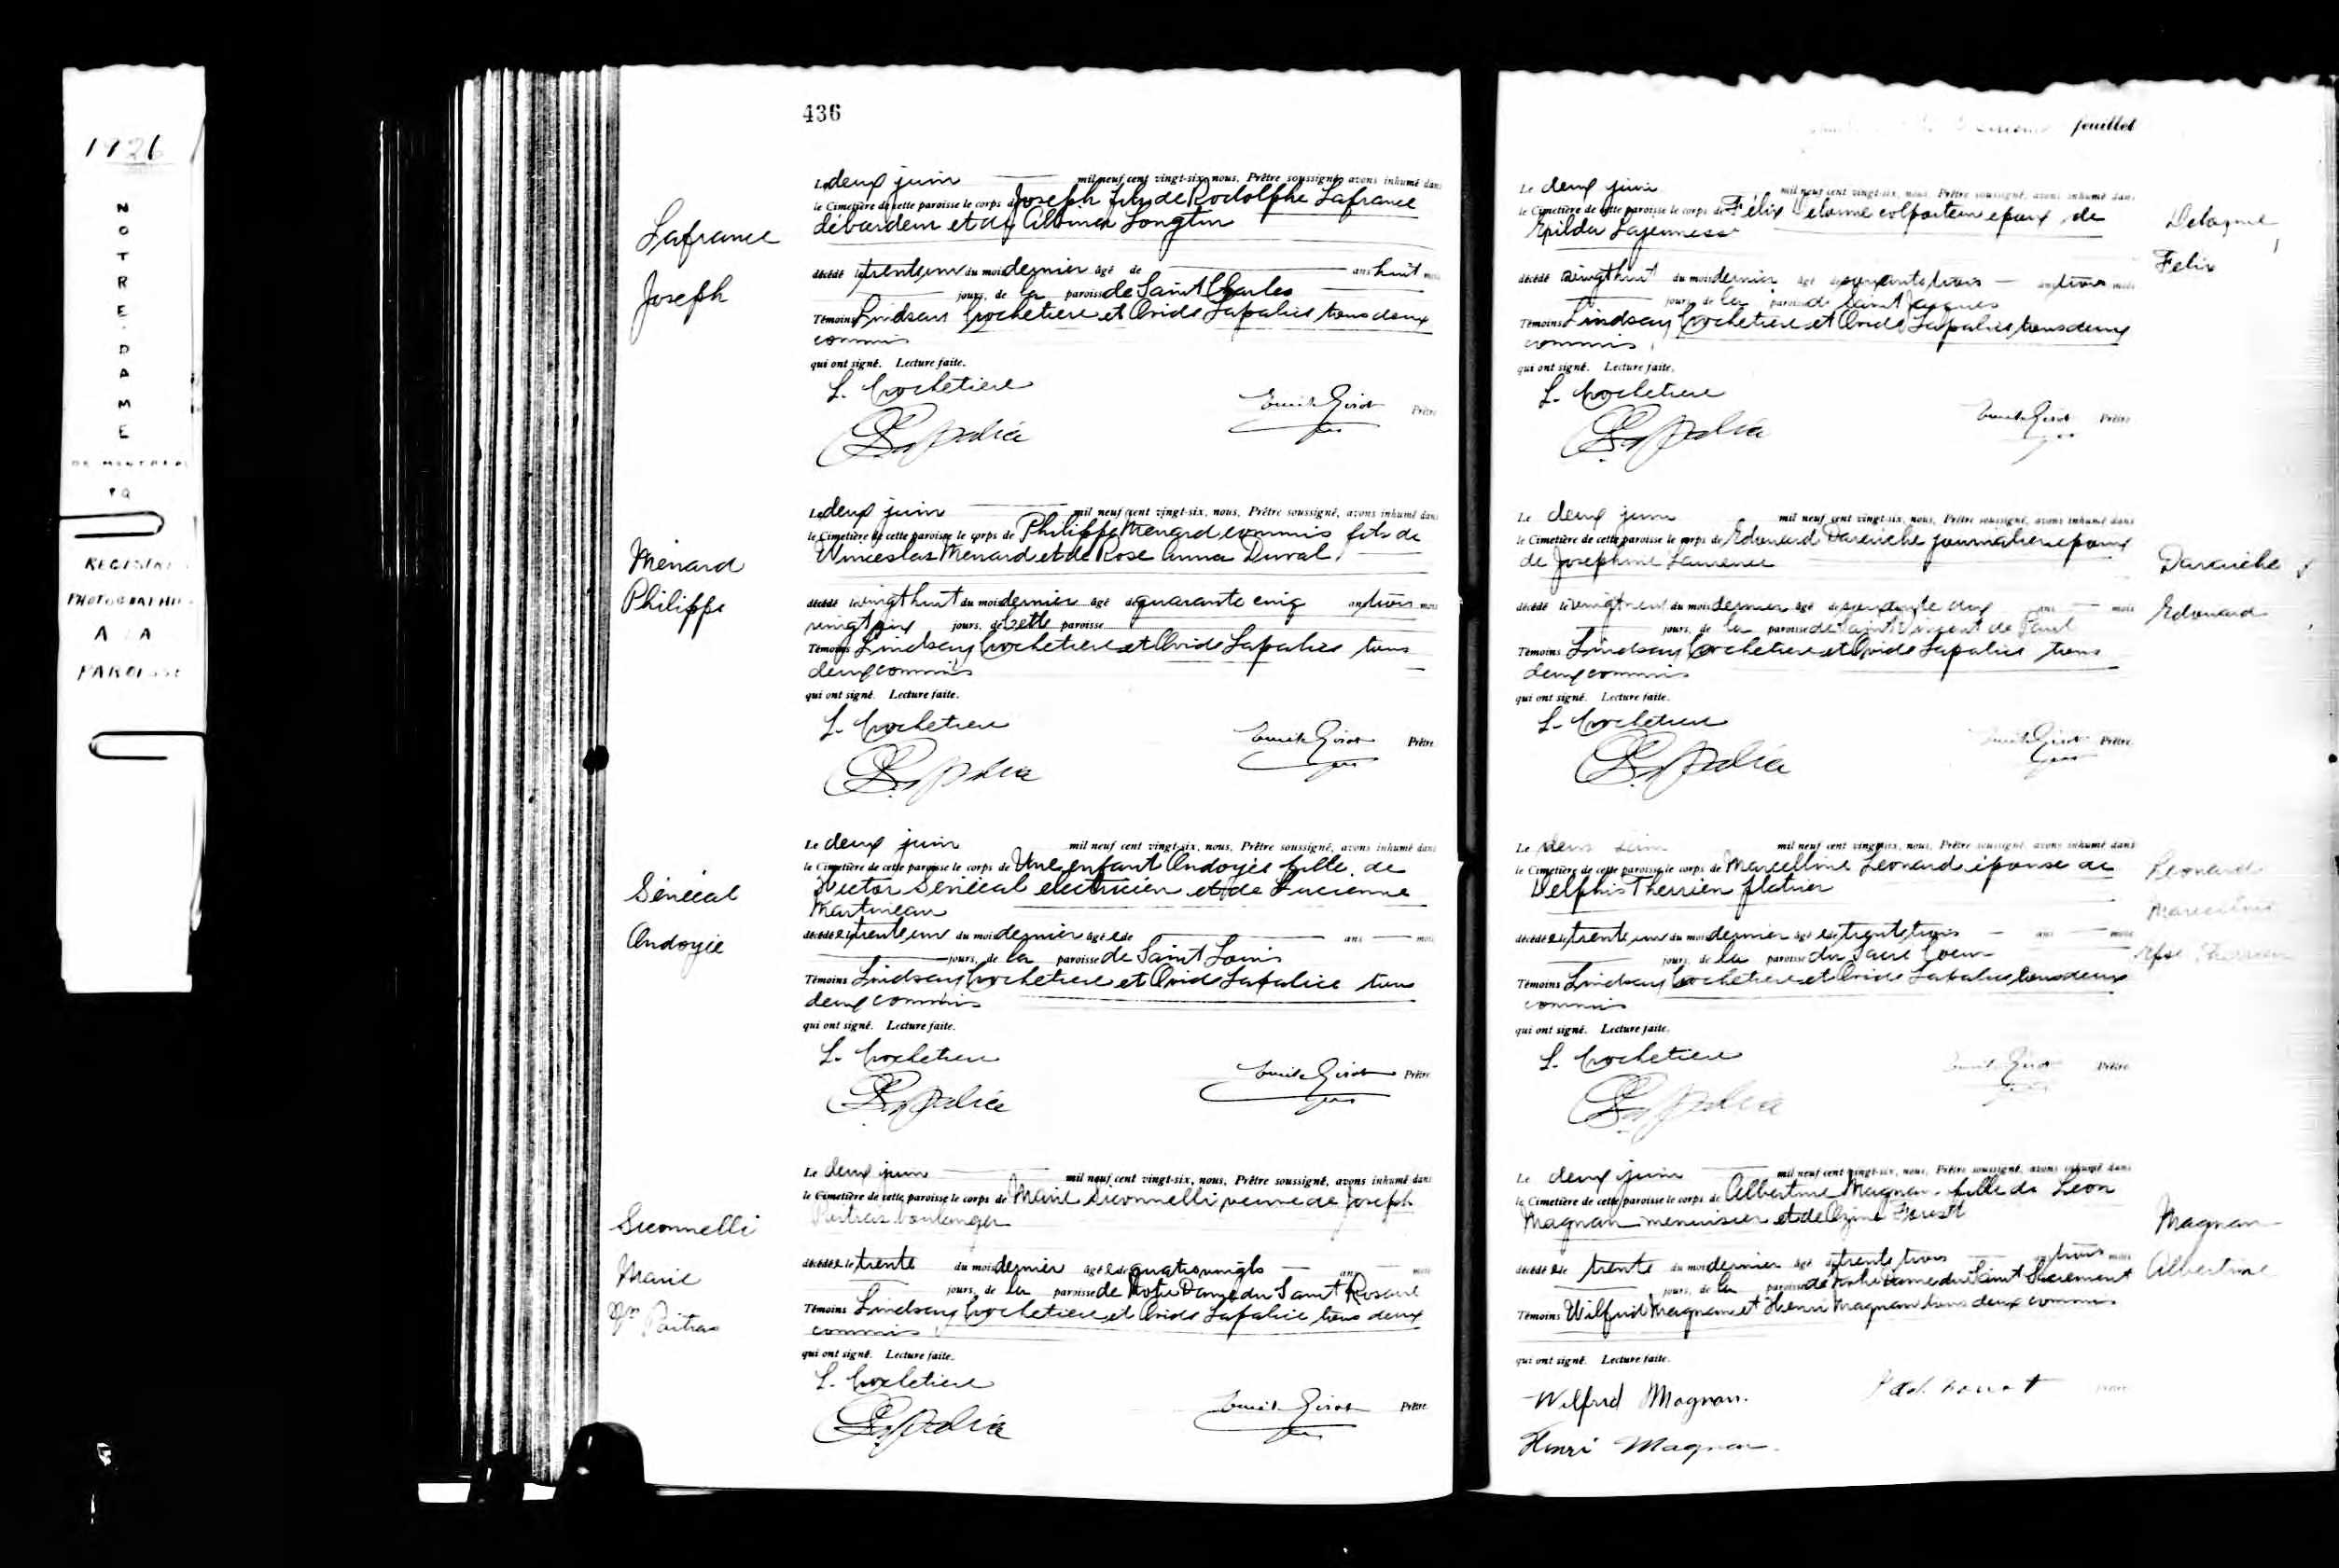 1926
NOTRE-DAME
DE MONTREAL
PQ
REGISTRE
PHOTOGRAPHIE
A LA
PAROISSE
436
Lafrance
Joseph
Le deux juin mil neuf cent vingt-six, nous, Prêtre soussigné, avons inhumé dans
le Cimetière de cette paroisse le corps de Joseph fils de Rodolphe Lafrance
débardeur et de Albina Longtin
décédé le trente un du mois dernier âgé de ans huit mois
jours, de la paroisse de Saint Charles
Témoins Lindsay Crochetiere et Ovide Lapalice tous deux
commis
qui ont signé. Lecture faite.
L. Crochetiere
Lapalice
Emile Girot Prêtre
Ménard
Philippe
Le deux juin mil neuf cent vingt-six, nous, Prêtre soussigné, avons inhumé dans
le Cimetière de cette paroisse le corps de Philippe Menard commis fils de
Winceslas Menard et de Rose anna Duval
décédé le vingt huit du mois dernier âgé de quarante cinq ans trois mois
vingt six jours, de cette paroisse
Témoins Lindsay Crochetiere et Ovide Lapalice tous
deux commis
qui ont signé. Lecture faite.
L. Crochetiere
Lapalice
Emile Girot Prêtre
Sénécal
Ondoyée
Le deux juin mil neuf cent vingt-six, nous, Prêtre soussigné, avons inhumé dans
le Cimetière de cette paroisse le corps de Une enfant Ondoyée fille de
Hector Sénécal electricien et de Lucienne
Martineau
décédée le trente un du mois dernier âgée de ans mois
jours, de la paroisse de Saint Louis
Témoins Lindsay Crochetiere et Ovide Lapalice tous
deux commis
qui ont signé. Lecture faite.
L. Crochetiere
Lapalice
Emile Girot Prêtre
Siconnelli
Marie
Vve Poitras
Le deux juin mil neuf cent vingt-six, nous, Prêtre soussigné, avons inhumé dans
le Cimetière de cette paroisse le corps de Marie Siconnelli veuve de Joseph
Poitras boulanger
décédée le trente du mois dernier âgée de quatre vingts ans mois
jours, de la paroisse de Notre Dame du Saint Rosaire
Témoins Lindsay Crochetiere et Ovide Lapalice tous deux
commis
qui ont signé. Lecture faite.
L. Crochetiere
Lapalice
Emile Girot Prêtre
feuillet
Le deux juin mil neuf cent vingt-six, nous, Prêtre soussigné, avons inhumé dans
le Cimetière de cette paroisse le corps de Félix Delorme colporteur epoux de
Exilda Lajeunesse
Delorme
Felix
décédé vingt huit du mois dernier âgé de soixante trois ans trois mois
jours, de la paroisse de Saint Jacques
Témoins Lindsay Crochetiere et Ovide Lapalice tous deux
commis
qui ont signé. Lecture faite.
L. Crochetiere
Lapalice
Emile Girot Prêtre
Le deux juin mil neuf cent vingt-six, nous, Prêtre soussigné, avons inhumé dans
le Cimetière de cette paroisse le corps de Edouard Daraiche journalier epoux
de Josephine Laurence
Daraiche
Edouard
décédé le vingt neuf du mois dernier âgé de ans mois
jours, de la paroisse de Saint Vincent de Paul
Témoins Lindsay Crochetiere et Ovide Lapalice tous
deux commis
qui ont signé. Lecture faite.
L. Crochetiere
Lapalice
Emile Girot Prêtre
Le deux juin mil neuf cent vingt-six, nous, Prêtre soussigné, avons inhumé dans
le Cimetière de cette paroisse le corps de Marcelline Leonard épouse de
Delphis Therrien platrier
Leonard
Marcelline
Epse Therrien
décédée le trente un du mois dernier âgée de trente trois ans mois
jours, de la paroisse du Sacré Coeur
Témoins Lindsay Crochetiere et Ovide Lapalice tous deux
commis
qui ont signé. Lecture faite.
L. Crochetiere
Lapalice
Emile Girot Prêtre
Le deux juin mil neuf cent vingt-six, nous, Prêtre soussigné, avons inhumé dans
le Cimetière de cette paroisse le corps de Albertine Magnan fille de Leon
Magnan menuisier et de Ozine Forest
Magnan
Albertine
décédée le trente du mois dernier âgé de trente trois ans trois mois
jours, de la paroisse de Notre Dame du Saint Sacrement
Témoins Wilfrid Magnan et Henri Magnan tous deux commis
qui ont signé. Lecture faite.
Wilfrid Magnan.
Henri Magnan.